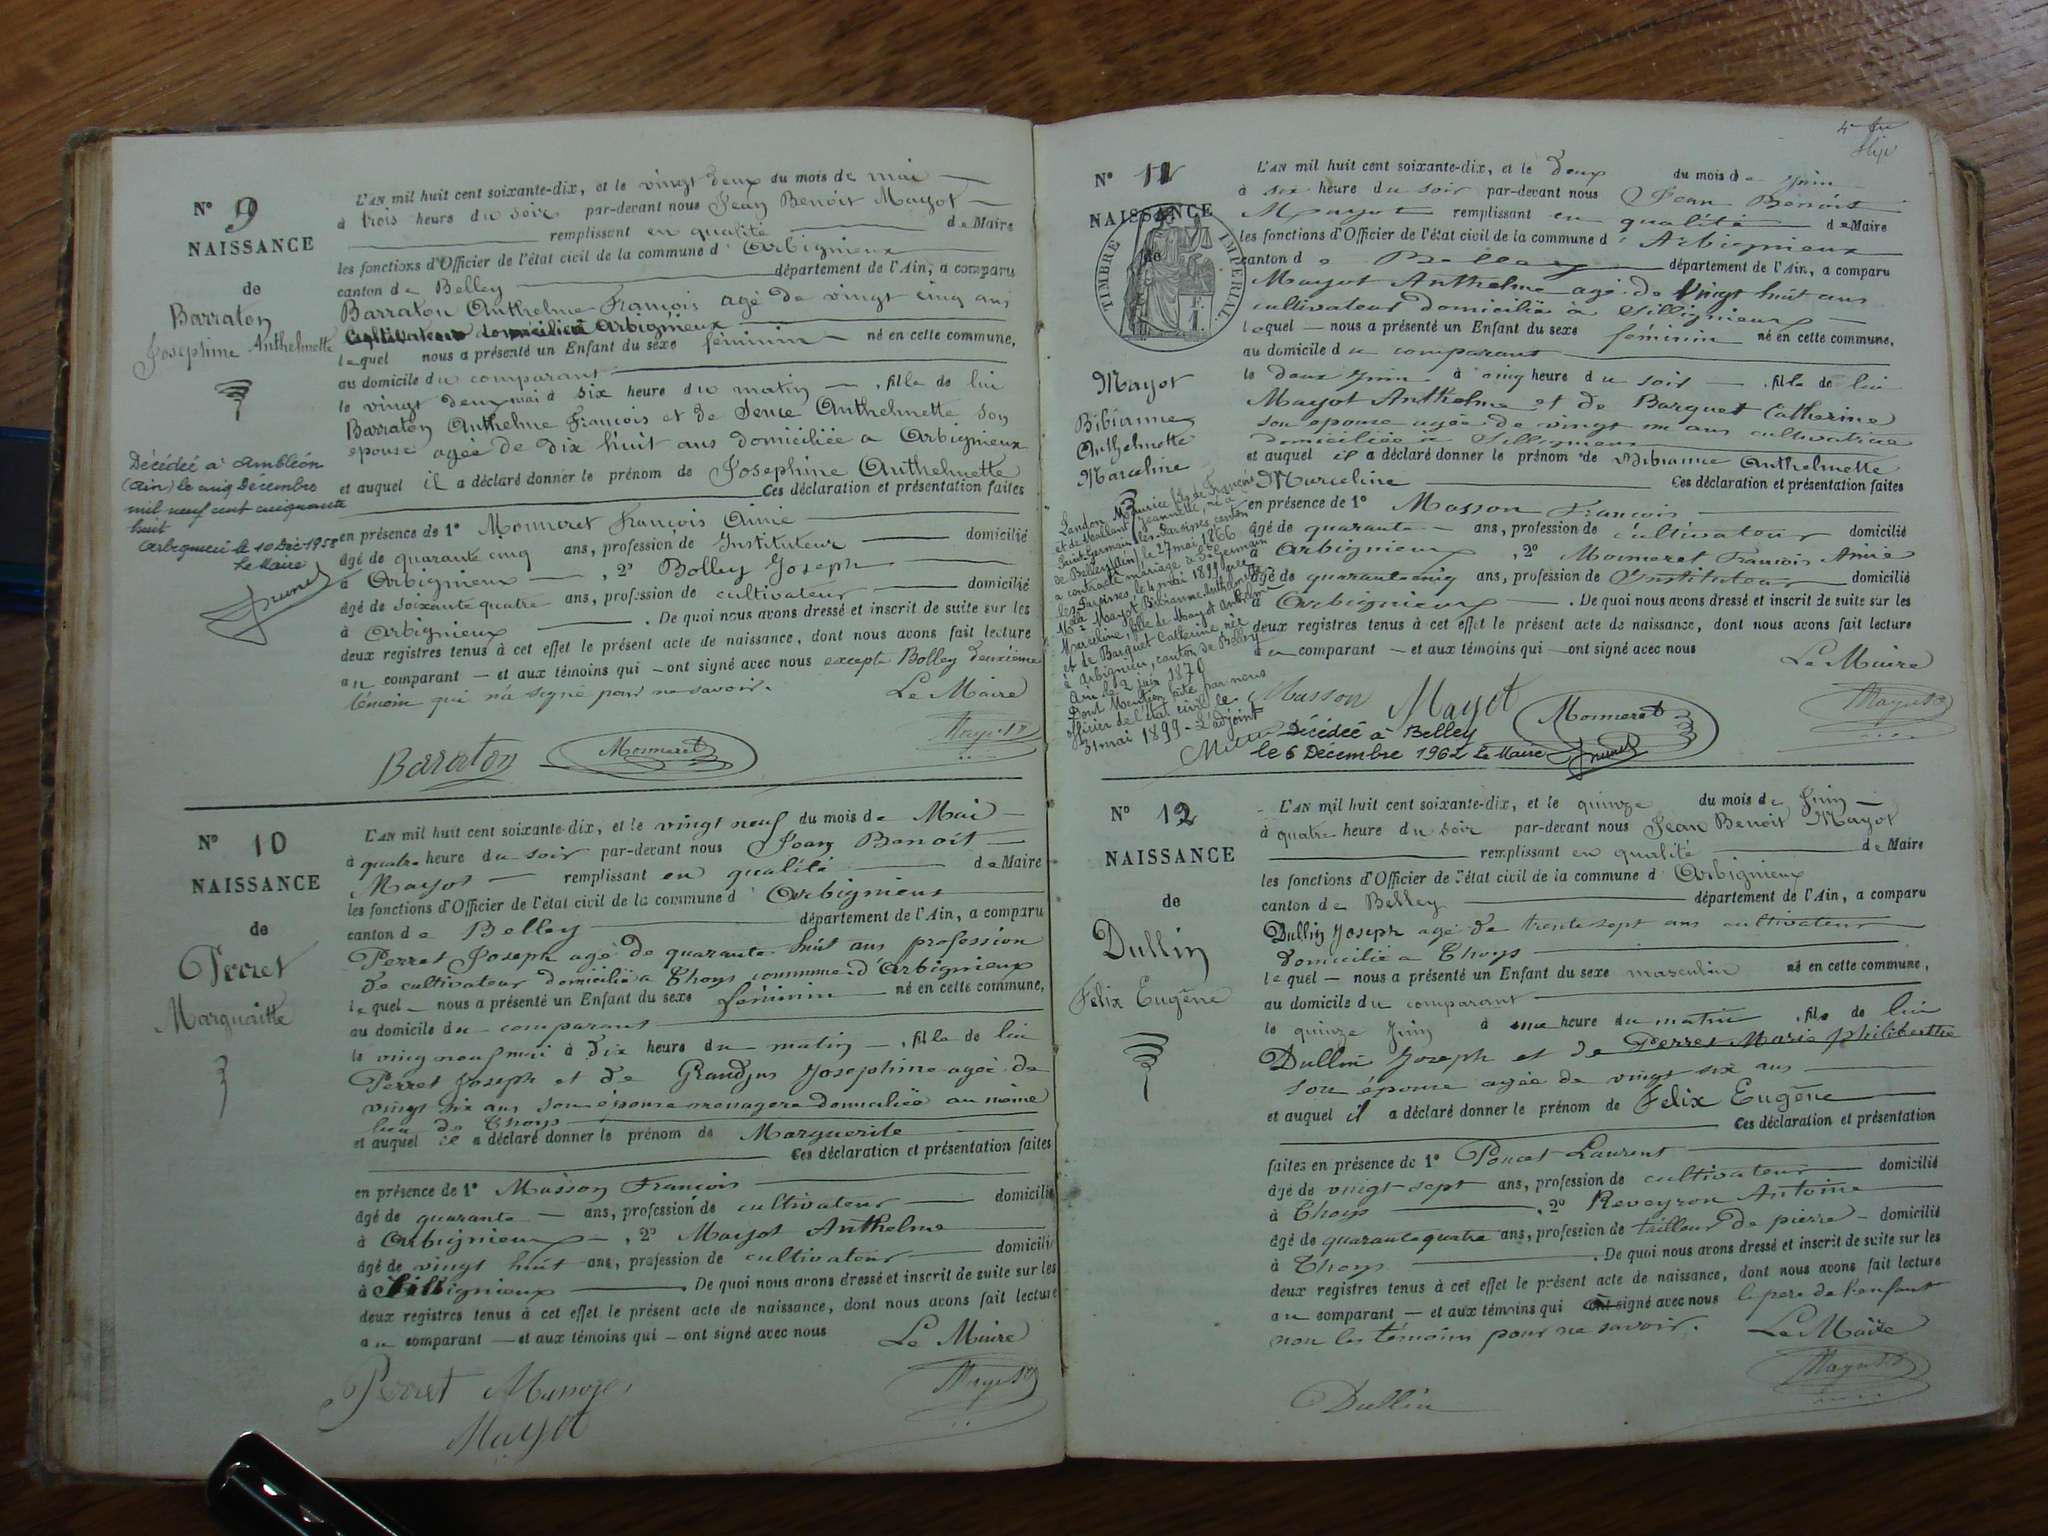 N° 9
NAISSANCE
de
Barraton
Josephine Anthelmette
Décédée à Ambléon
(Ain) le cinq Décembre
mil neuf cent cinquante
huit
Arbignieu le 10 Déc 1958
Le Maire
L'AN mil huit cent soixante-dix, et le vingt deux du mois de mai
à trois heure du soir par-devant nous Jean Benoit Mayot
remplissant en qualité de Maire
les fonctions d'Officier de l'état civil de la commune d'Arbignieux
canton de Belley département de l'Ain, a comparu
Barraton Anthelme François agé de vingt cinq ans
Cultivateur domicilié à Arbignieux
lequel nous a présenté un Enfant du sexe féminin né en cette commune,
au domicile du comparant
le vingt deux mai à six heure du matin, fille de lui
Barraton Anthelme François et de Anthelmette son
epouse agée de dix huit ans domiciliée a Arbignieux
et auquel il a déclaré donner le prénom de Josephine Anthelmette
Ces déclaration et présentation faites
en présence de 1° Monneret François Aimé domicilié
âgé de quarante cinq ans, profession de Instituteur
à Arbignieux, 2° Bolley Joseph
âgé de soixante quatre ans, profession de cultivateur domicilié
à Arbignieux. De quoi nous avons dressé et inscrit de suite sur les
deux registres tenus à cet effet le présent acte de naissance, dont nous avons fait lecture
au comparant et aux témoins qui ont signé avec nous excepté Bolley deuxième
témoin qui n'a signé pour ne savoir.
Le Maire
Barraton Monneret Mayot
N° 10
NAISSANCE
de
Perret
Marguaitte
L'AN mil huit cent soixante-dix, et le vingt neuf du mois de Mai
à quatre heure du soir par-devant nous Jean Benoit
Mayot remplissant en qualité de Maire
les fonctions d'Officier de l'état civil de la commune d'Arbignieux
canton de Belley département de l'Ain, a comparu
Perret Joseph agé de quarante huit ans profession
de cultivateur domicilié a Thoys commune d'Arbignieux
lequel nous a présenté un Enfant du sexe féminin né en cette commune,
au domicile du comparant
le ving neuf mai à dix heure du matin, fille de lui
Perret Joseph et de Grandjus Josephine agée de
vingt six ans son épouse menagere domiciliée au même
lieu de Thoys
et auquel il a déclaré donner le prénom de Marguerite
Ces déclaration et présentation faites
en présence de 1° Masson François
âgé de quarante ans, profession de cultivateur domicilié
à Arbignieux, 2° Mayot Anthelme
âgé de vingt huit ans, profession de cultivateur domicilié
à Sillignieux De quoi nous avons dressé et inscrit de suite sur les
deux registres tenus à cet effet le présent acte de naissance, dont nous avons fait lecture
au comparant et aux témoins qui ont signé avec nous
Le Maire
Perret Masson Mayot
Mayot
N° 11
NAISSANCE
de
TIMBRE IMPERIAL
Mayot
Bibianne
Anthelmette
Marceline
Landon Maurice fils de François
et de Meslant Jeannette, né à
Saint Germain les Paroisses canton
de Belley (Ain) le 27 mai 1866
a contracté mariage à St Germain
les Paroisses le 4 mai 1899 avec
Mayot Bibianne Anthelmette
Marceline, fille de Mayot Anthelme
et de Barquet Catherine, née
à Arbignieu, canton de Belley
Ain le 2 juin 1870
Dont Mention faite par nous
officier de l'état civil le
31 mai 1899 - L'adjoint
L'AN mil huit cent soixante-dix, et le deux du mois de Juin
à six heure du soir par-devant nous Jean Benoit
Mayot remplissant en qualité de Maire
les fonctions d'Officier de l'état civil de la commune d'Arbignieux
canton de Belley département de l'Ain, a comparu
Mayot Anthelme agé de vingt huit ans
cultivateur domicilié à Sillignieux
lequel nous a présenté un Enfant du sexe féminin né en cette commune,
au domicile du comparant
le deux Juin à cinq heure du soir, fille de lui
Mayot Anthelme et de Barquet Catherine
son epouse agée de vingt un ans cultivatrice
domiciliée a Sillignieux
et auquel il a déclaré donner le prénom de Bibianne Anthelmette
Marceline Ces déclaration et présentation faites
en présence de 1° Masson François
âgé de quarante ans, profession de cultivateur domicilié
à Arbignieux, 2° Monneret François Aimé
âgé de quarante cinq ans, profession de Instituteur domicilié
à Arbignieux. De quoi nous avons dressé et inscrit de suite sur les
deux registres tenus à cet effet le présent acte de naissance, dont nous avons fait lecture
au comparant et aux témoins qui ont signé avec nous
Le Maire
Masson Mayot Monneret Mayot
Décédée à Belley
le 6 Décembre 1962 Le Maire
N° 12
NAISSANCE
de
Dullin
Félix Eugêne
L'AN mil huit cent soixante-dix, et le quinze du mois de Juin
à quatre heure du soir par-devant nous Jean Benoit Mayot
remplissant en qualité de Maire
les fonctions d'Officier de l'état civil de la commune d'Arbignieux
canton de Belley département de l'Ain, a comparu
Dullin Joseph agé de trente sept ans cultivateur
domicilié a Thoys
lequel nous a présenté un Enfant du sexe masculin né en cette commune,
au domicile du comparant
le quinze Juin à une heure du matin, fils de lui
Dullin Joseph et de Perret Marie Philiberthe
son épouse agée de vingt six ans
et auquel il a déclaré donner le prénom de Felix Eugêne
Ces déclaration et présentation
faites en présence de 1° Poncet Laurent
âgé de vingt sept ans, profession de cultivateur domicilié
à Thoys, 2° Reveyron Antoine
âgé de quarante quatre ans, profession de tailleur de pierre domicilié
à Thoys. De quoi nous avons dressé et inscrit de suite sur les
deux registres tenus à cet effet le présent acte de naissance, dont nous avons fait lecture
au comparant et aux témoins qui ont signé avec nous le pere de l'enfant
non les témoins pour ne savoir.
Le Maire
Dullin Mayot